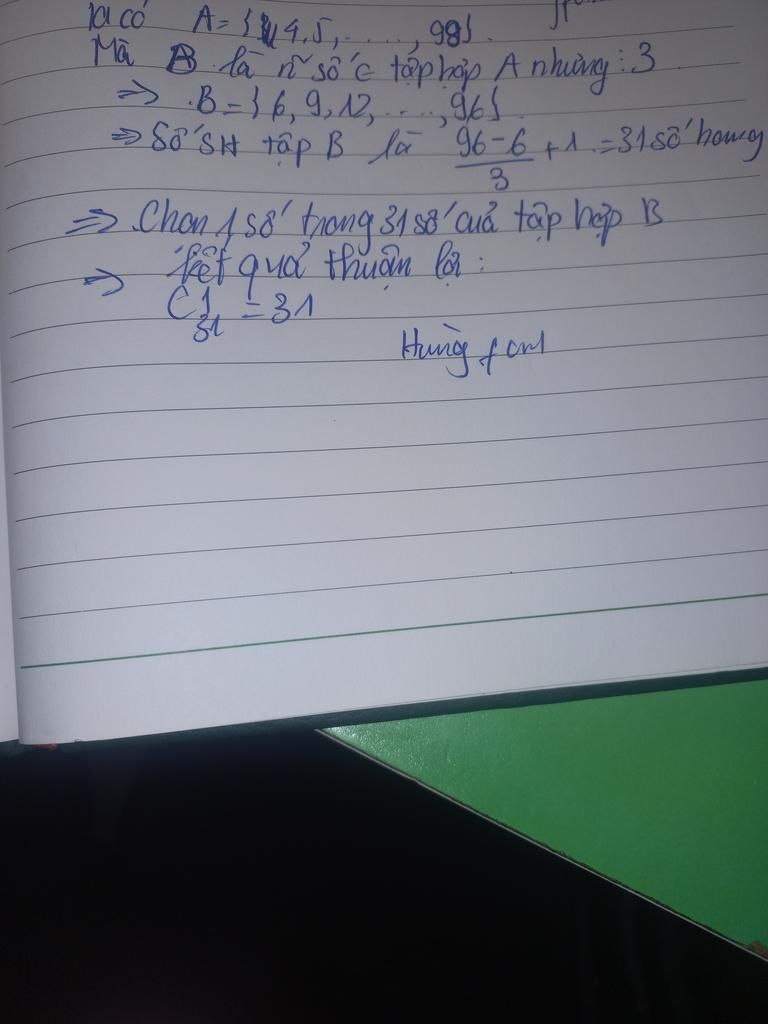 Ta có A = { 4, 5, ....., 98}.
Mà B là n~ số ∈ tập hợp A nhưng ⋮ 3
=> B = { 6, 9, 12, ...., 96}
=> Số SH tập B là (96-6)/3 + 1 = 31 số hạng
=> Chọn 1 số trong 31 số của tập hợp B
=> kết quả thuận lợi :
C^1_31 = 31
Hùng